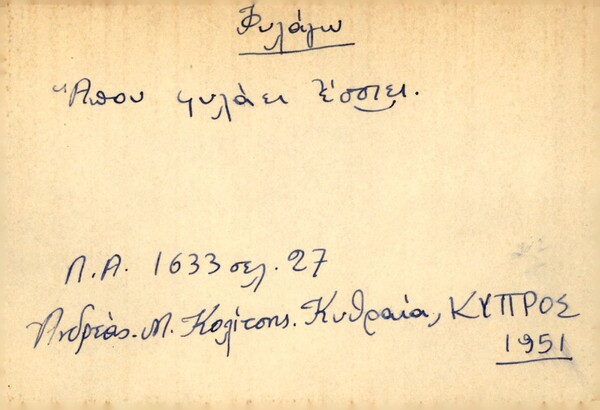 Φυλάγω
Ἅπου φυλάει ἔσσιει.
Λ.Α. 1633 σελ. 27
Ἀνδρέας. Μ. Κολίτσης. Κυθραία, ΚΥΠΡΟΣ
1951